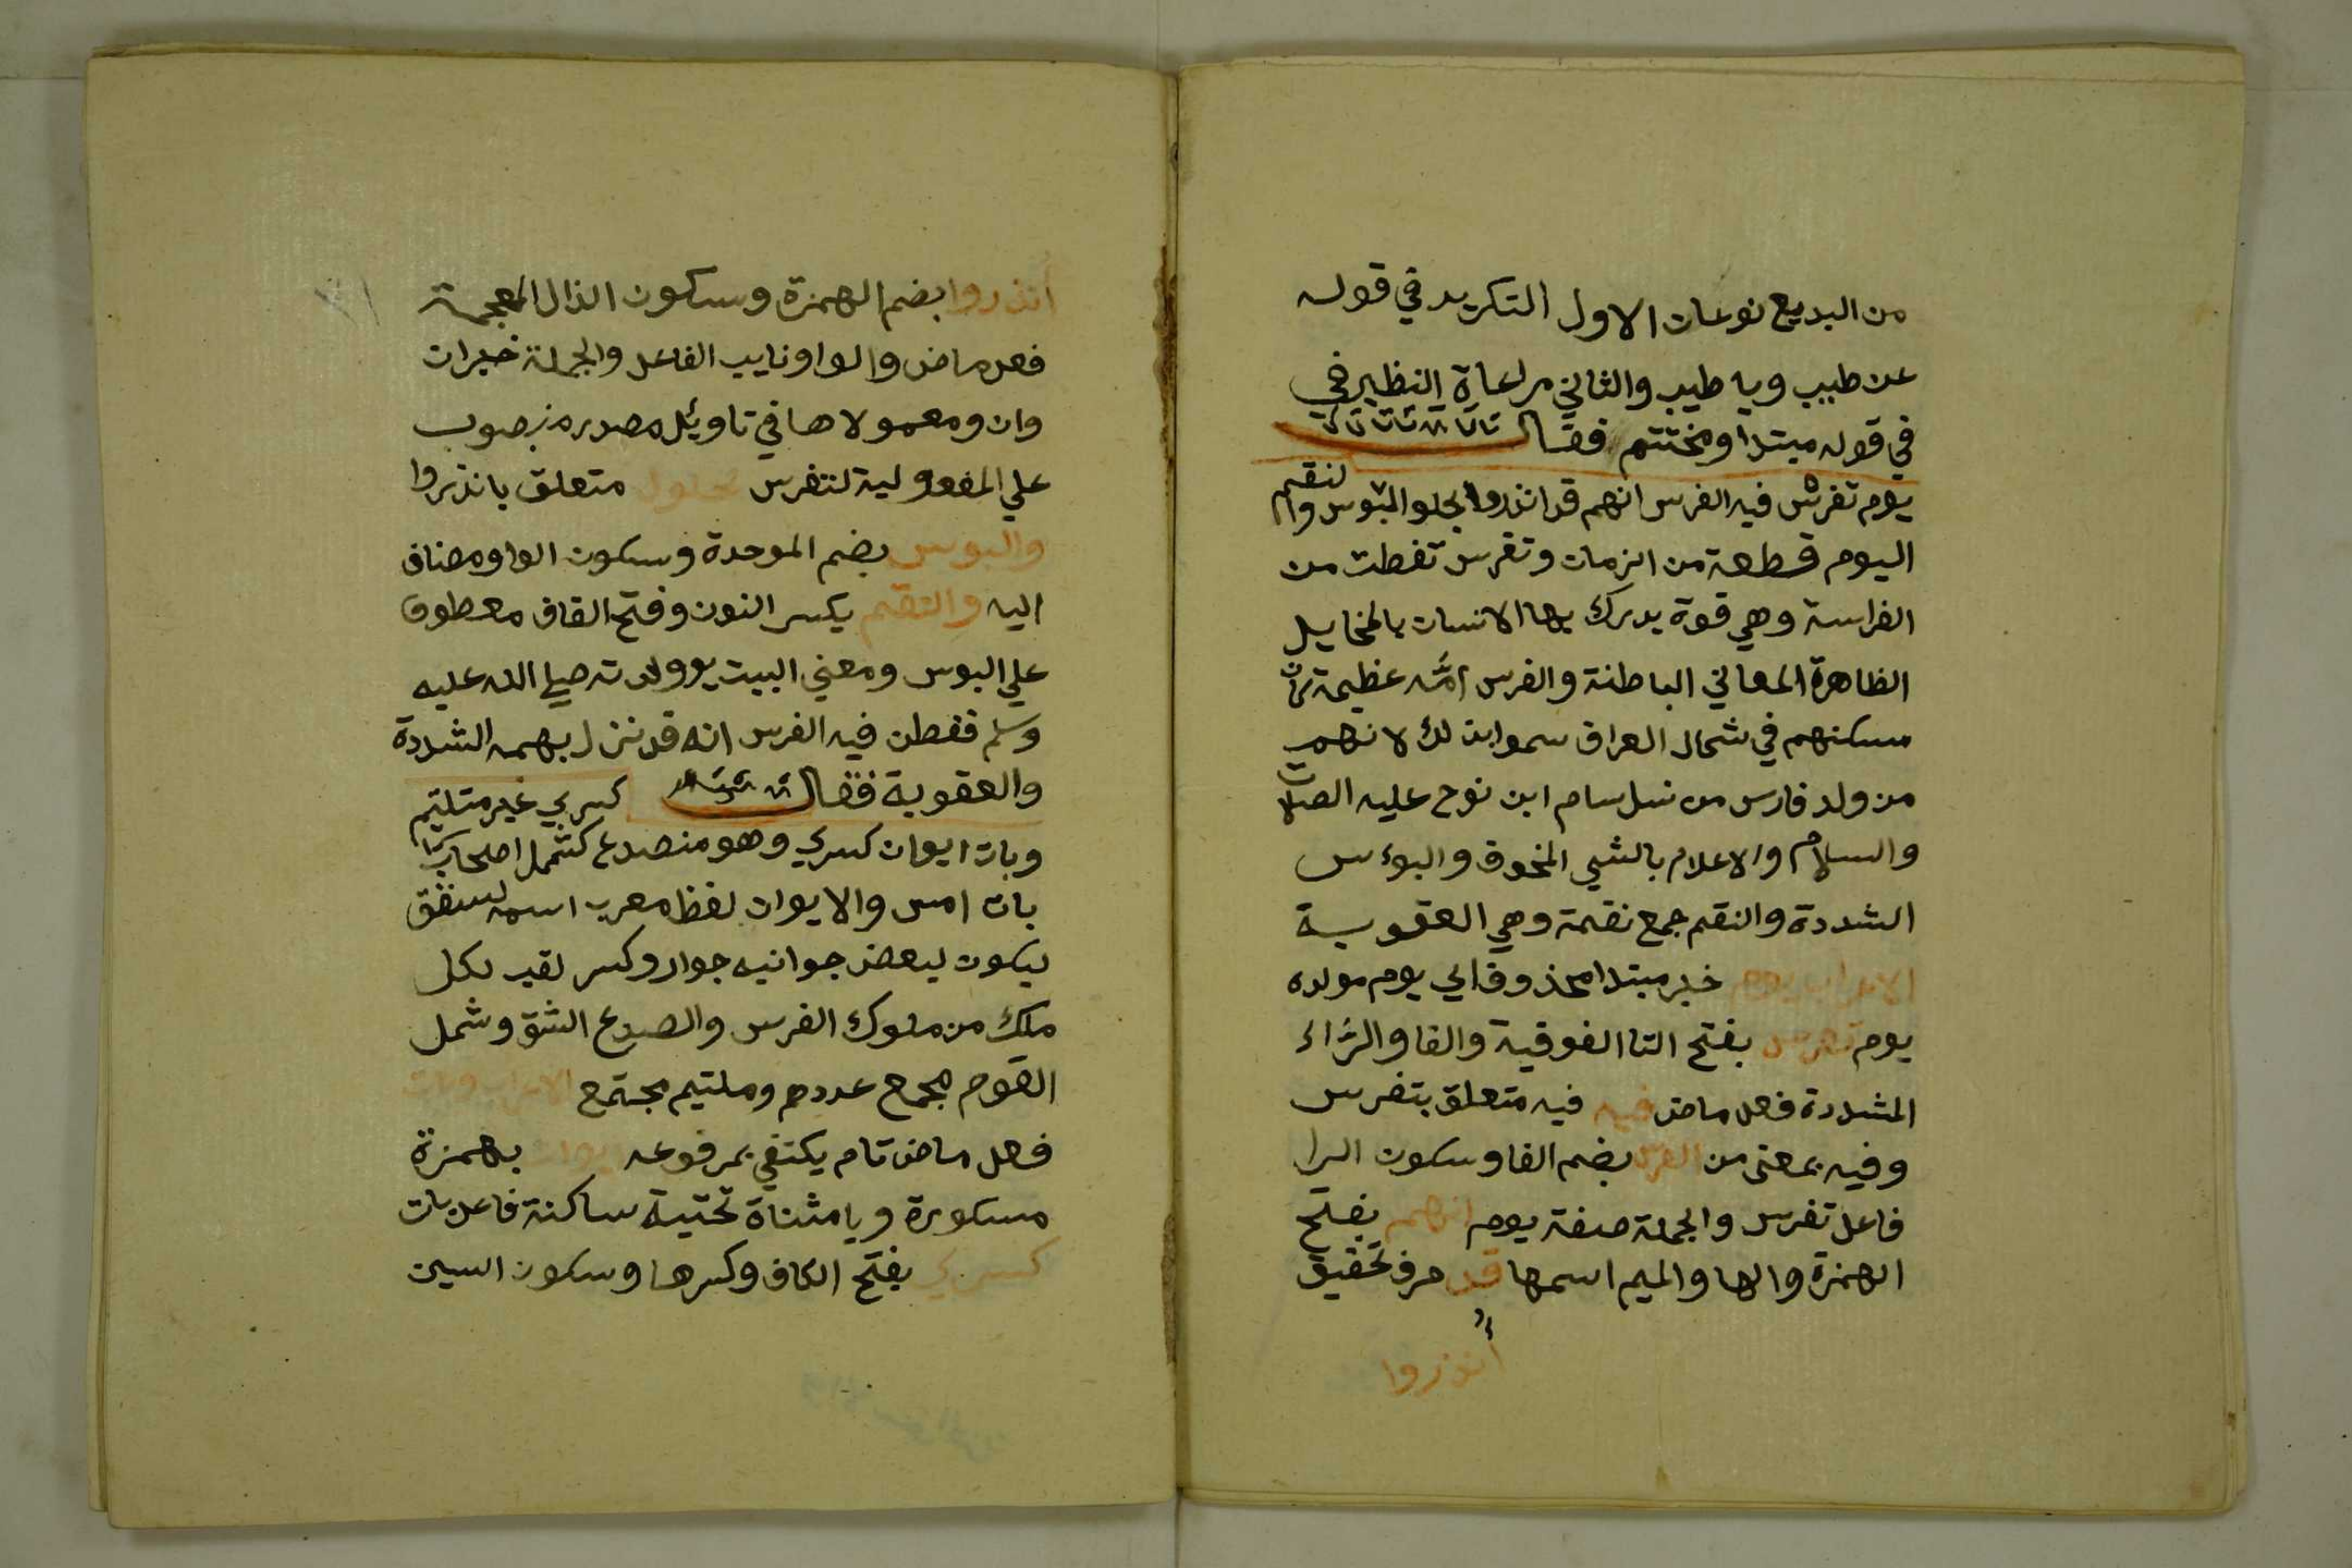 من البديع نوعان الاول التكرير في قوله
عن طيب ويا طيب والثاني مراعاة النظير في
في قوله مبتدا ومختتم فقال
يوم تفرس فيه الفرس انهم قد انذروا بحلو البوس والنقم
اليوم قطعة من الزمان وتفرس تفطن من
الفراسة وهي قوة يدرك بها الانسان بالمخايل
الظاهرة المعاني الباطنة والفرس امة عظيمة كان
مسكنهم في شمال العراق سموا بذلك لانهم
من ولد فارس من نسل سام ابن نوح عليه الصلاة
والسلام والاعلام بالشي المخوف والبوءس
الشددة والنقم جمع نقمة وهي العقوبة
الاعراب يوم خبر مبتدا محذوف اي يوم مولده
يوم تفرس بفتح التا الفوقية والفا والراء
المشددة فعل ماض فيه فيه متعلق بتفرس
وفيه بمعنى من الفرس بضم الفا وسكون الرا
فاعل تفرس والجملة صفة يوم انهم بفتح
الهمزة والها والميم اسمها قد حرف تحقيق
أنذروا
أنذروا بضم الهمزة وسكون الذال المعجمة
فعل ماض والواو نايب الفاعل والجملة خبر ان
وان ومعمولاها في تاويل مصدر منصوب
علي المفعولية لتفرس بحلول متعلق بانذروا
والبوس بضم الموحدة وسكون الواو مضاف
اليه والنقم بكسر النون وفتح القاف معطوف
علي البوس ومعني البيت يوم ولادته صلي الله عليه
وسلم ففطن فيه الفرس انه قد نزل بهم الشددة
والعقوبة فقال
وبات ايوان كسري وهو منصدع كشمل اصحاب كسري غير ملتيم
بات امس والايوان لفظ معرب اسم لسقف
يكون لبعض جوانبه جوار وكسر لقب لكل
ملك من ملوك الفرس والصدع الشق وشمل
القوم مجمع عددهم وملتيم مجتمع الاعراب وبات
فعل ماض تام يكتفي بمرفوعه يوان بهمزة
مسكورة ويا مثناة تحتية ساكنة فاعل بات
كسري بفتح الكاف وكسرها وسكون السين